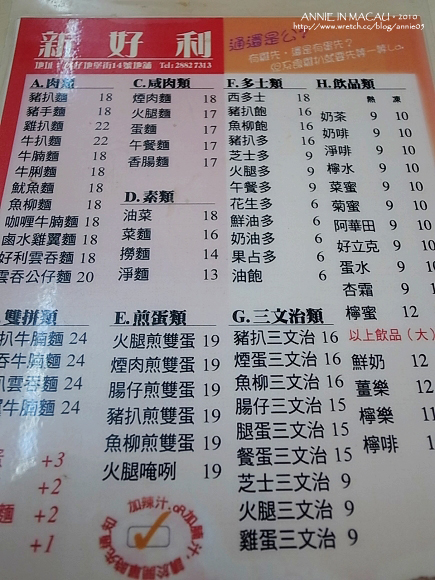 ANNIE IN MACAU • 2010
http://www.wretch.cc/blog/annie05
新好利
Tel: 28827313
A.肉類
豬扒麵 18
豬手麵 18
雞扒麵 22
牛扒麵 22
牛腩麵 18
牛脷麵 18
魷魚麵 18
魚柳麵 18
咖喱牛腩麵 18
鹵水雞翼麵 18
好利雲吞麵 18
雲吞公仔麵 20
C.咸肉類
煙肉麵 18
火腿麵 17
蛋麵 17
午餐麵 17
香腸麵 17
D.素類
油菜 18
菜麵 16
撈麵 14
淨麵 13
F.多士類
西多士 18
豬扒飽 16
魚柳飽 16
豬扒多 16
芝士多 9
火腿多 9
午餐多 9
花生多 6
鮮油多 6
奶油多 6
果占多 6
油飽 6
H.飲品類
熱 凍
奶茶 9 10
奶啡 9 10
淨啡 9 10
檸水 9 10
菜蜜 9 10
菊蜜 9 10
阿華田 9 10
好立克 9 10
蛋水 9 10
杏霜 9
檸蜜 12
以上飲品（大）
鮮奶 12
薑樂 11
檸樂 11
檸啡 12
雙拼類
扒牛腩麵 24
吞牛腩麵 24
扒雲吞麵 24
牛腩麵 24
E.煎蛋類
火腿煎雙蛋 19
煙肉煎雙蛋 19
腸仔煎雙蛋 19
豬扒煎雙蛋 19
魚柳煎雙蛋 19
火腿唵咧 19
G.三文治類
豬扒三文治 16
煙蛋三文治 16
魚柳三文治 16
腸仔三文治 15
腿蛋三文治 15
餐蛋三文治 15
芝士三文治 9
火腿三文治 9
雞蛋三文治 9
蛋 +3
+2
麵 +2
+1
加辣汁